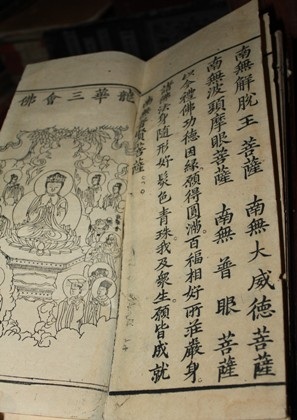 南無解脫王菩薩 南無大威德菩薩
南無波頭摩眼菩薩 南無普眼菩薩
以今禮佛功德因緣願得圓滿百福相好所莊嚴身
諸佛法身隨形好髮色青珠我及眾生願皆成就
南無菩薩
龍華三會佛